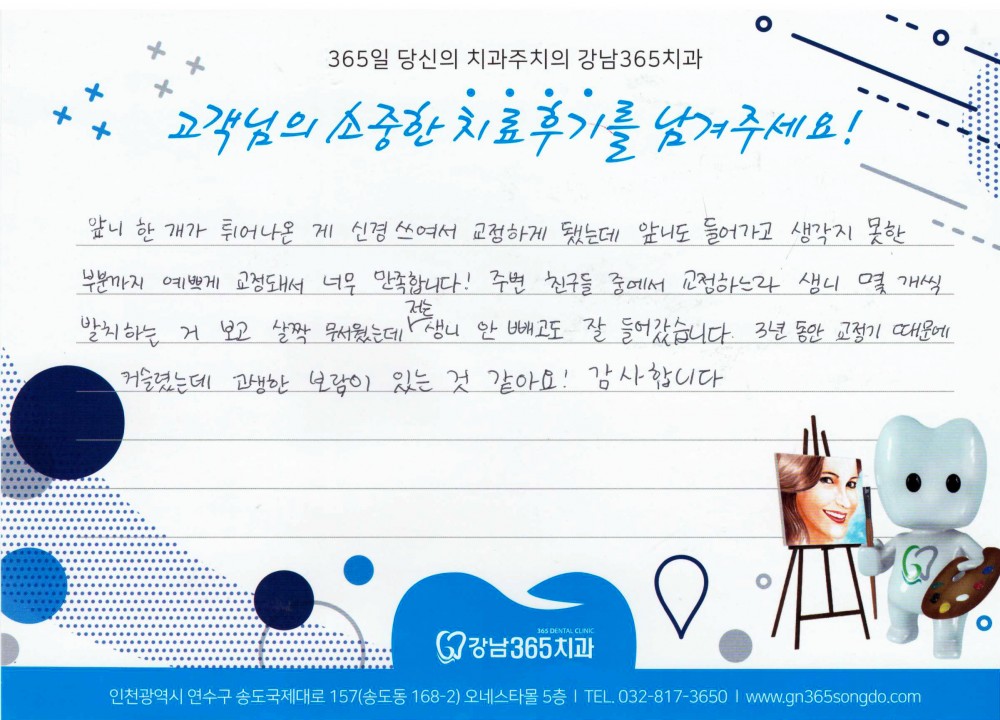 365일 당신의 치과주치의 강남365치과
고객님의 소중한 치료후기를 남겨주세요!
앞니 한 개가 튀어나온 게 신경 쓰여서 교정하게 됐는데 앞니도 들어가고 생각지 못한
부분까지 예쁘게 교정돼서 너무 만족합니다! 주변 친구들 중에서 교정하느라 생니 몇 개씩
발치하는 거 보고 살짝 무서웠는데 저는 생니 안 빼고도 잘 들어갔습니다. 3년 동안 교정기 때문에
거슬렸는데 고생한 보람이 있는 것 같아요! 감사합니다
365 DENTAL CLINIC
강남365치과
인천광역시 연수구 송도국제대로 157(송도동 168-2) 오네스타몰 5층 | TEL. 032-817-3650 | www.gn365songdo.com